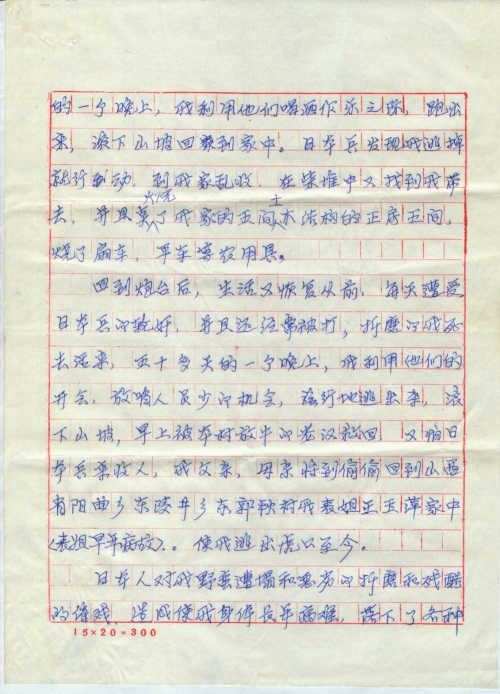 的一个晚上，我利用他们喝酒作乐之际，跑出
来，滚下山坡回到家中。日本兵发现我逃掉
就行动，到我家乱收，在柴堆中又找到我带
火烧 土
去，并且了我家的五间木结构的正房五间，
烧了扇车，平车等农用具。
回到炮台后，生活又恢复从前，每天遭受
日本兵的轮奸，并且还经常被打，折磨的我死
去活来，五十多天的一个晚上，我利用他们的
开会，放哨人员少的机会，强行地逃出来，滚
下山坡，早上被本村放牛的老汉救回，又怕日
本兵来收人，我父亲，母亲将到偷偷回到山西
省阳曲乡东陵井乡东郭秋村我表姐王玉萍家中
（表姐早年病故）.。使我逃出虎口至今。
日本人对我野蛮遭塌和的折磨和残酷
的，造成使我身体长年病难，落下了各种
15×20=300